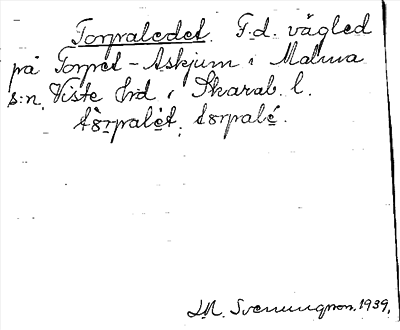 Torpaledet. F.d. vägled
på Torpet - Askjum i Malma
s:n, Viste hrd i Skarab. l.
tɔrpalèt, tɔrpalé.
I.M. Svenungson. 1939.